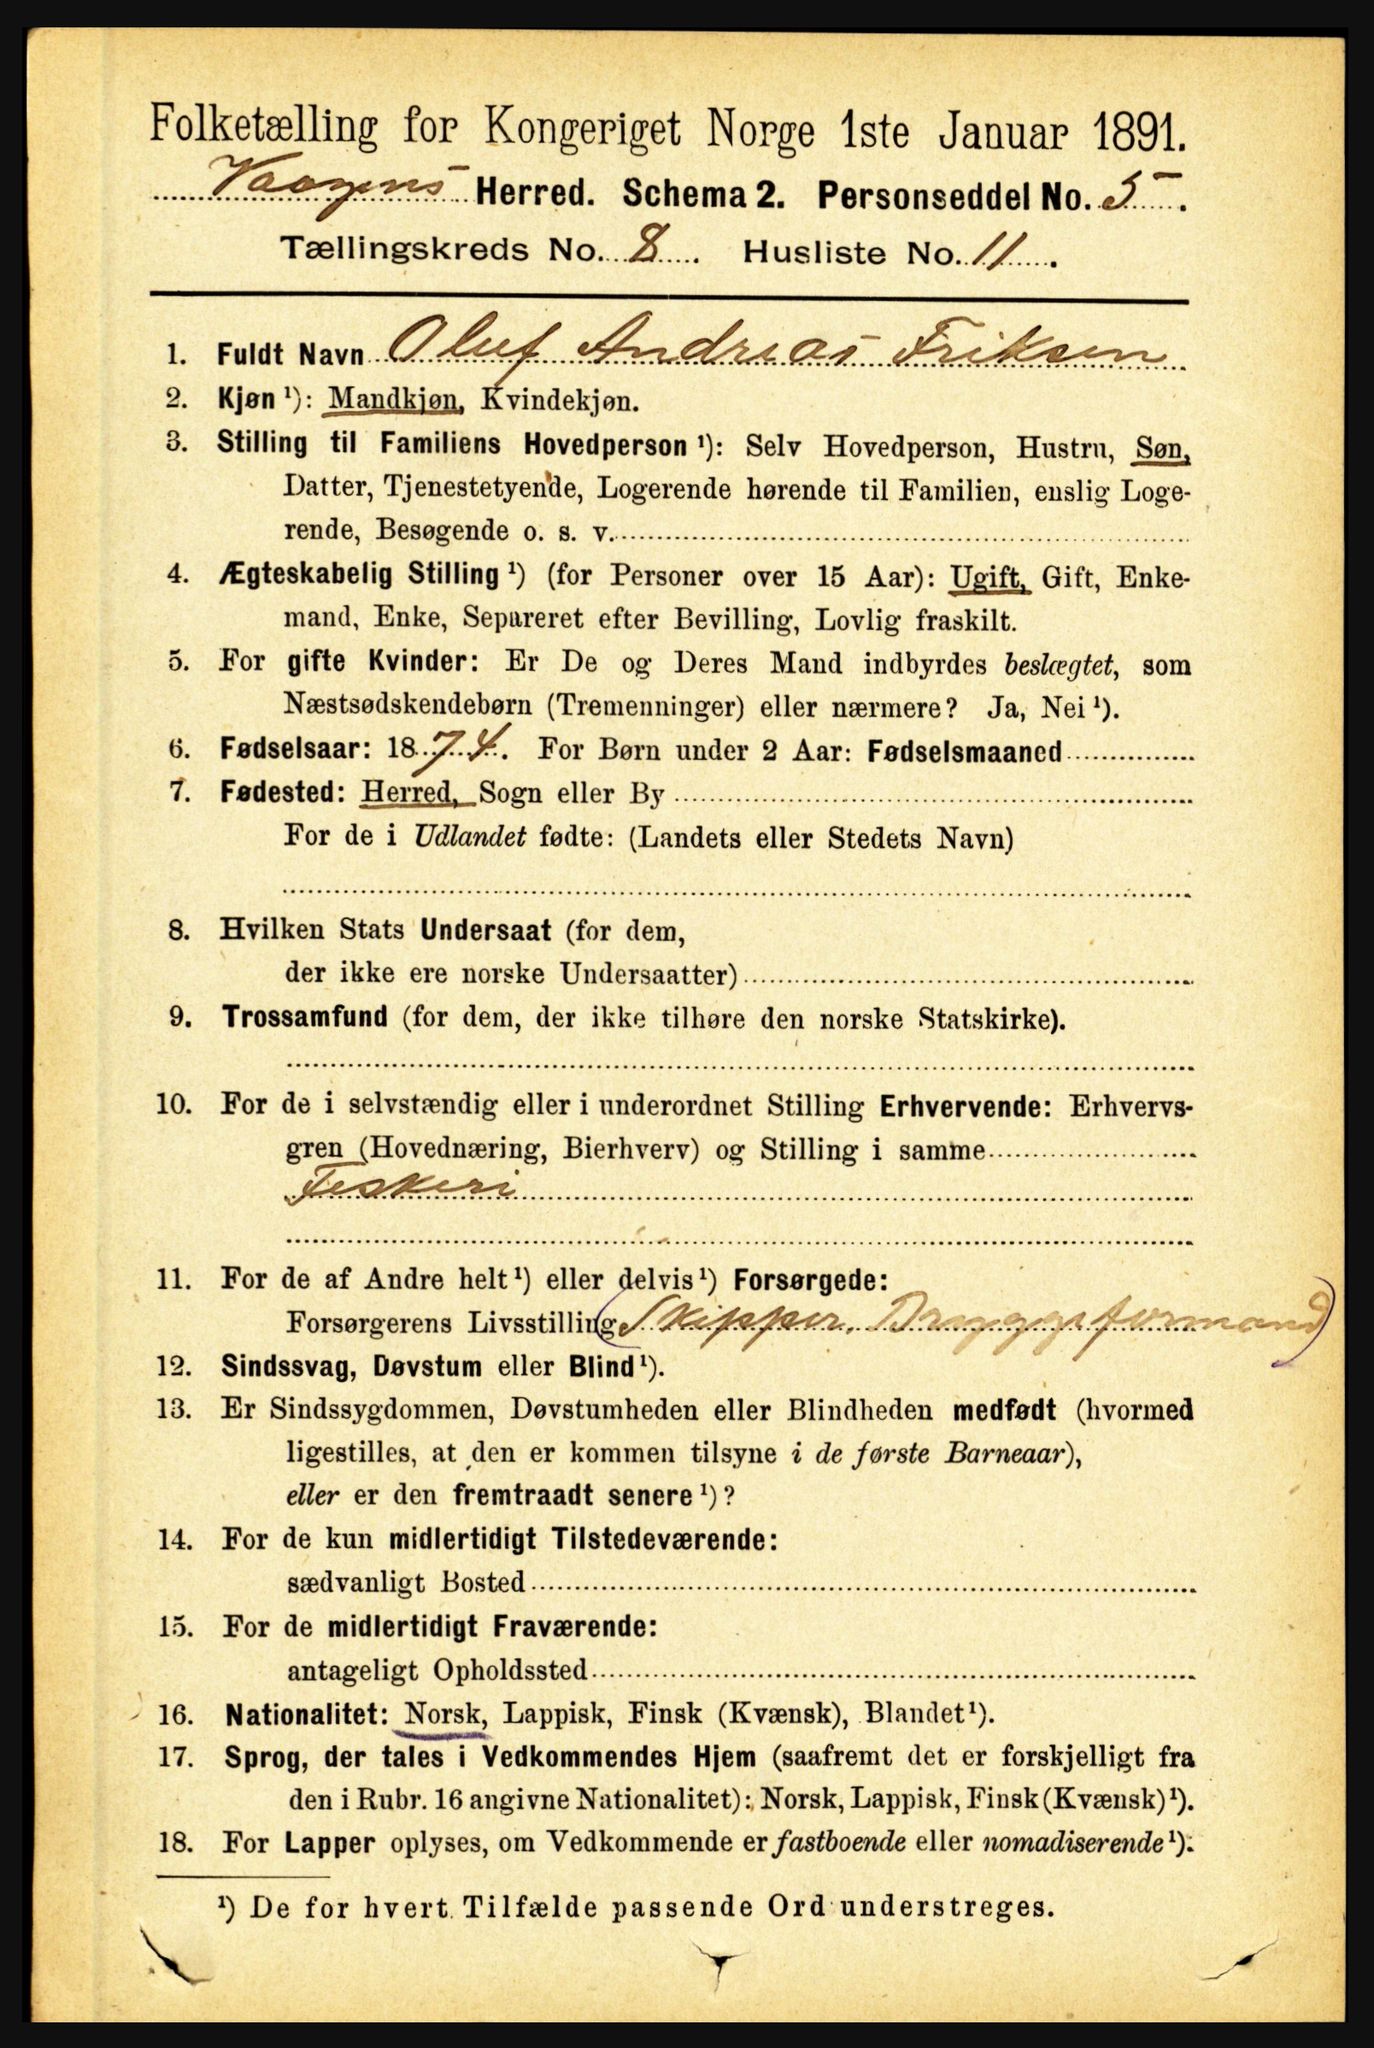 Folketælling for Kongeriget Norge 1ste Januar 1891.
Vaagens Herred. Schema 2. Personseddel No. 5.
Tællingskreds No. 8. Husliste No. 11.
1. Fuldt Navn Oluf Andreas Friksen
2. Kjøn ¹): Mandkjøn, Kvindekjøn.
3. Stilling til Familiens Hovedperson ¹): Selv Hovedperson, Hustru, Søn,
Datter, Tjenestetyende, Logerende hørende til Familien, enslig Loge-
rende, Besøgende o. s. v.
4. Ægteskabelig Stilling ¹) (for Personer over 15 Aar): Ugift, Gift, Enke-
mand, Enke, Separeret efter Bevilling, Lovlig fraskilt.
5. For gifte Kvinder: Er De og Deres Mand indbyrdes beslægtet, som
Næstsødskendebørn (Tremenninger) eller nærmere? Ja, Nei ¹).
6. Fødselsaar: 1874. For Børn under 2 Aar: Fødselsmaaned
7. Fødested: Herred, Sogn eller By
For de i Udlandet fødte: (Landets eller Stedets Navn)
8. Hvilken Stats Undersaat (for dem,
der ikke ere norske Undersaatter)
9. Trossamfund (for dem, der ikke tilhøre den norske Statskirke).
10. For de i selvstændig eller i underordnet Stilling Erhvervende: Erhvervs-
gren (Hovednæring, Bierhverv) og Stilling i samme
Feskeri
11. For de af Andre helt ¹) eller delvis ¹) Forsørgede:
Forsørgerens Livsstilling (Skipper. Bryggeformand)
12. Sindssvag, Døvstum eller Blind ¹).
13. Er Sindssygdommen, Døvstumheden eller Blindheden medfødt (hvormed
ligestilles, at den er kommen tilsyne i de første Barneaar),
eller er den fremtraadt senere ¹)?
14. For de kun midlertidigt Tilstedeværende:
sædvanligt Bosted
15. For de midlertidigt Fraværende:
antageligt Opholdssted
16. Nationalitet: Norsk, Lappisk, Finsk (Kvænsk), Blandet ¹).
17. Sprog, der tales i Vedkommendes Hjem (saafremt det er forskjelligt fra
den i Rubr. 16 angivne Nationalitet): Norsk, Lappisk, Finsk (Kvænsk) ¹).
18. For Lapper oplyses, om Vedkommende er fastboende eller nomadiserende ¹).
¹) De for hvert Tilfælde passende Ord understreges.